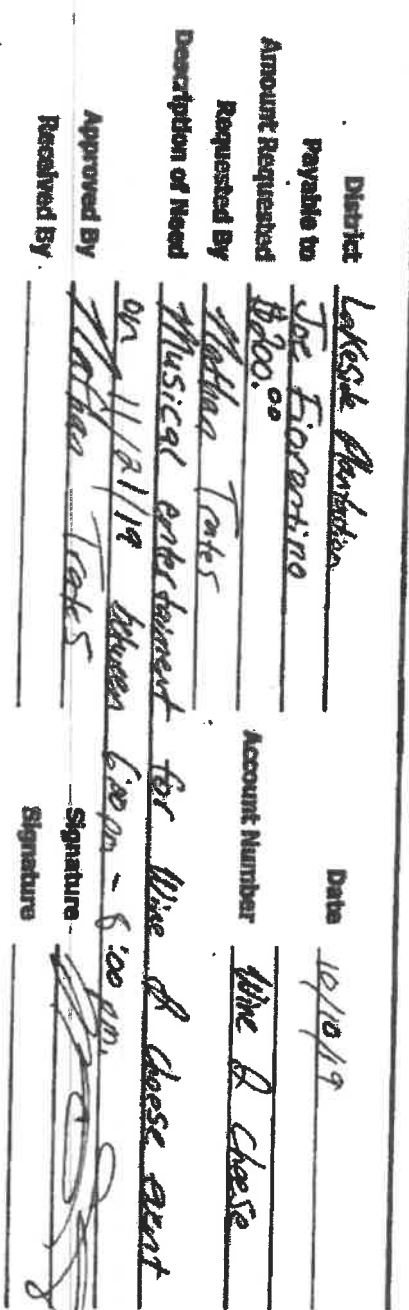 District Lakeside Plantation Date 10/10/19
Payable to Joe Fiorentino
Amount Requested $200.00 Account Number Wine & Cheese
Requested By Nathan Trates
Description of Need Musical entertaiment for Wine & Cheese event
on 11/21/19 between 6:00 pm - 8:00 pm.
Approved By Nathan Trates Signature
Received By Signature